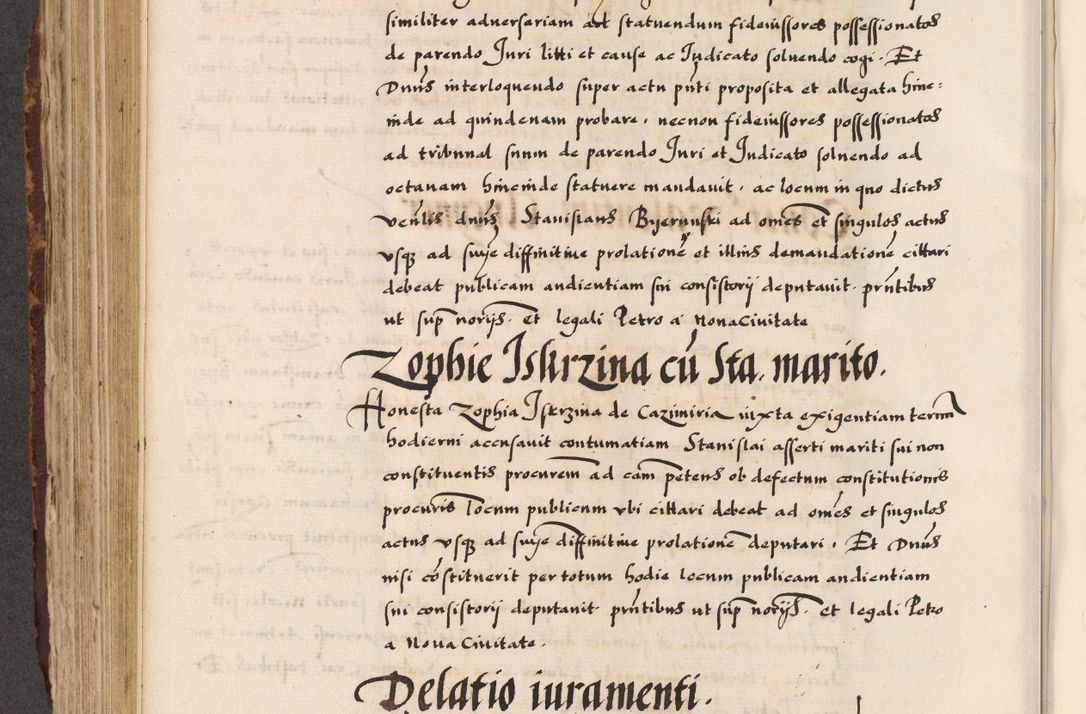 similiter adversariam ast statuendum fideiussores possessionatos
de parendo Iuri litti et cause ac Iudicato soluendo cogi. Et
Dnus interloquendo super actu pnti proposita et allegata hinc:
inde ad quindenam probare, necnon fideiussores possessionatos
ad tribunal suum de parendo Iuri et Iudicato soluendo ad
octauam hincinde statuere mandauit, ac locum in quo dictus
venlis dnus Stanislaus Byerunski ad omes et singulos actus
vsq ad suye diffinitiue prolatione et illius demandatione cittari
debeat publicam audientiam sui consistorij deputauit. pntibus
ut sup norijs. et legali Petro a Nona Ciuitate
Zophie Iskrzina cu Sta. marito.
Honesta Zophia Iskrzina de Cazimiria iuxta exigentiam termi
hodierni accusauit contumatiam Stanislai asserti mariti sui non
constituentis procurem ad cam petens ob defectum constitutionis
procuris locum publicum vbi cittari debeat ad omes et singulos
actus vsq ad suye diffinitiue prolatione deputari. Et Dnus
nisi costituerit per totum hodie locum publicam audientiam
sui consistorij deputauit pntibus ut sup norijs. et legali Petro
a Noua Ciuitate.
Delatio iuramenti.